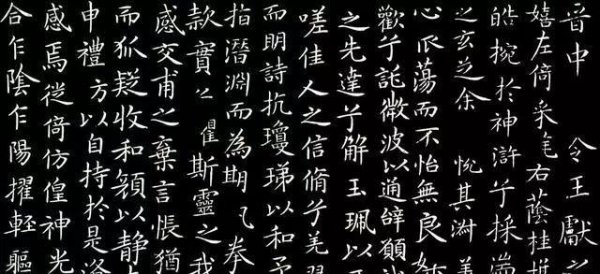 晉中 令王獻
嬉左倚采旄右蔭桂
皓捥於神滸兮採湍
之玄芝余 悅其淑美
心振蕩而不怡無良
歡兮託微波以通辭願
之先達兮解玉珮以
嗟佳人之信脩兮羌習
而明詩抗瓊珶以和予
指潛淵而為期 拳
款實 瞿斯靈之我
感交甫之棄言悵猶
而狐疑收和顏以靜
申禮方以自持於是洛
感焉徙倚仿偟神光
合乍陰乍陽擢輕軀